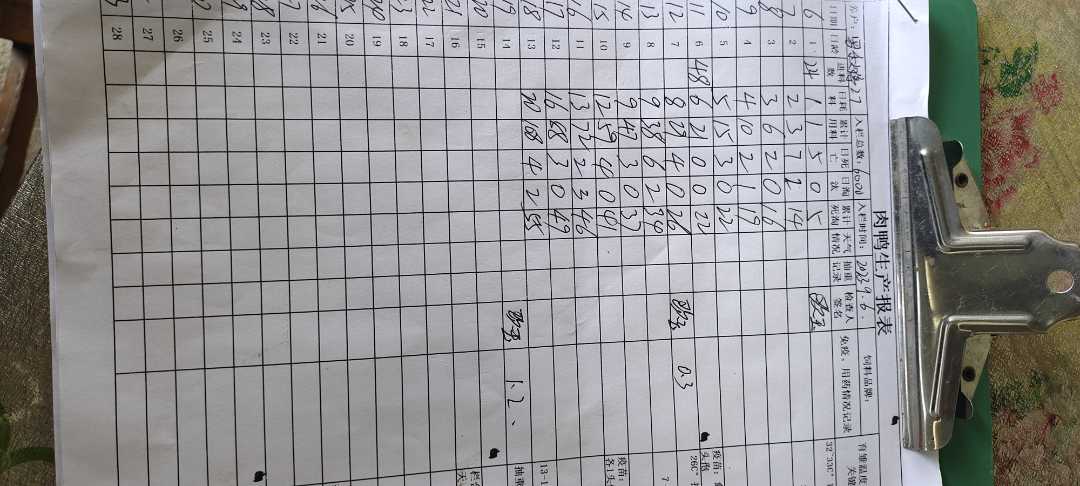 肉鸭生产报表
农户: 入栏总数: 入栏时间: 2023.9.6. 饲料品牌:
日期 日龄 进料数 日耗料 累计用料 日死亡 日淘汰 累计死淘 天气情况 抽重记录 检查人签名 免疫、用药情况记录 育雏温度
6 1 24 1 1 5 0 5 32°33C°
7 2 2 3 7 2 14
8 3 3 6 2 0 16
9 4 4 10 2 1 19
10 5 5 15 3 0 22 疫苗:
11 6 48 6 21 0 0 22 26C°
12 7 8 29 4 0 26 0.3 7
13 8 9 38 6 2 34
14 9 9 47 3 0 37 疫苗:
15 10 12 59 4 0 41 各1头
16 11 13 72 2 3 46
17 12 16 88 3 0 49
18 13 20 108 4 2 55 13-1
19 14 1.2. 抽重
20 15
21 16
17
18
19
20
21
22
23
24
25
26
27
28